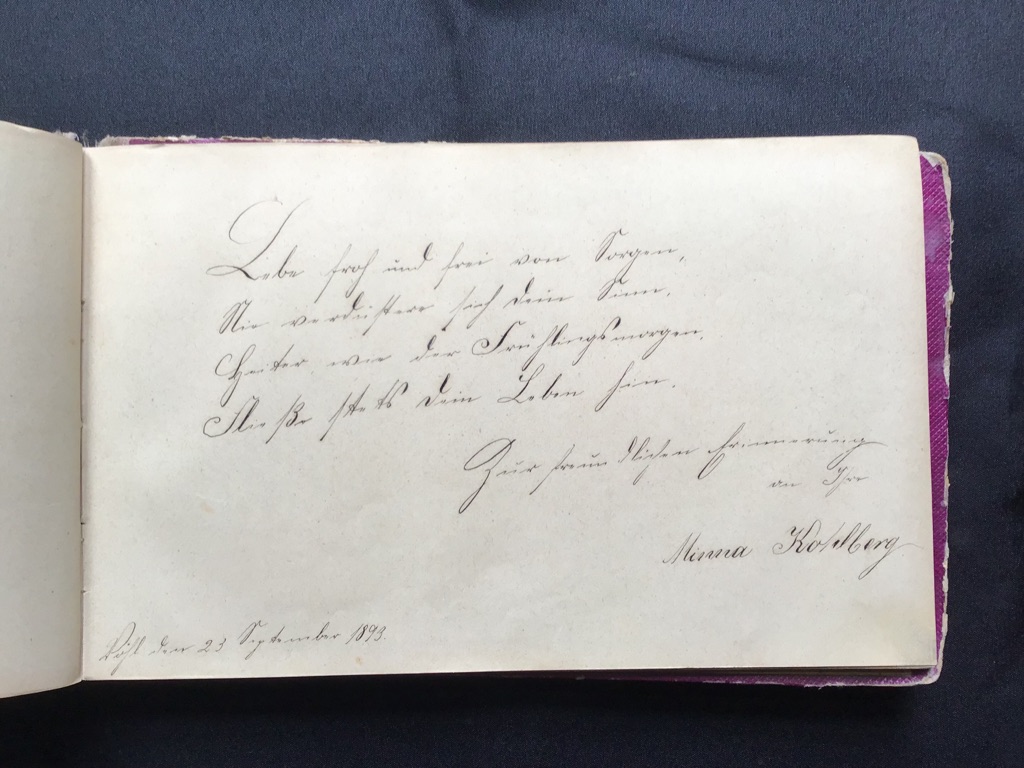 Lebe froh und frei von Sorgen,
Nie verdüstere sich dein Sinn,
Heiter wie der Frühlingsmorgen,
Fließe stets dein Leben hin.
Zur freundlichen Erinnerung
an Ihre
Minna Kohlberg
Vöhl den 23 September 1893.